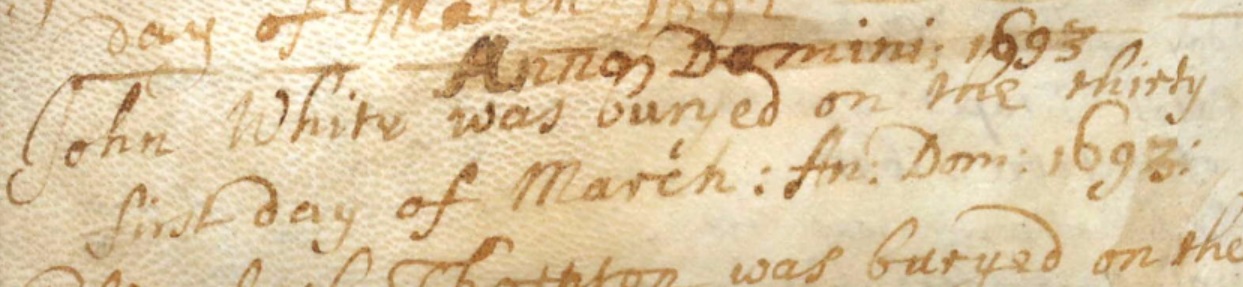 day of March 169
Anno Domini: 1693
John White was buryed on the thirty
first day of March: An: Dom: 1693:
Thornton was buryed on the